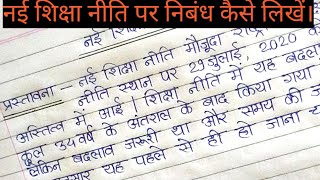 नई शिक्षा नीति पर निबंध कैसे लिखें।
नई
प्रस्तावना — नई शिक्षा नीति मौजूदा राष्ट्र
नीति स्थान पर 29 जुलाई, 2020 को
अस्तित्व में आई। शिक्षा नीति में यह बदलाव
कुल 34 वर्ष के अंतराल के बाद किया गया
लेकिन बदलाव जरूरी था और समय की ज
यह पहले से ही हो जाना च